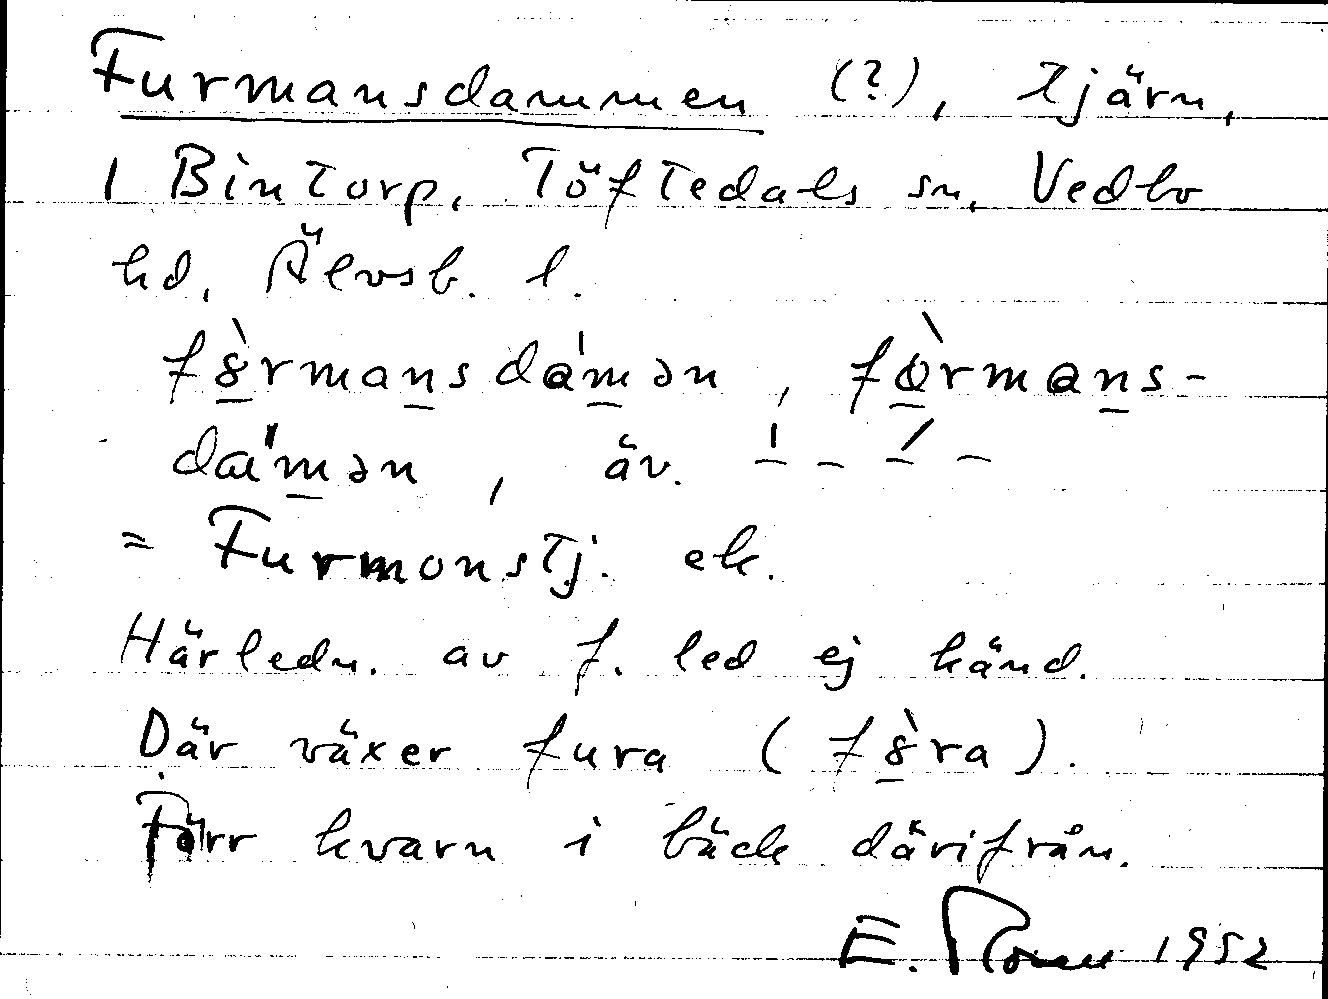 Furmansdammen (?), tjärn,
i Bintorp, Töftedals sn, Vedbo
hd, Älvsb. l.
fȣ̀rmansdam̀ən, fòrmans-
dam̀ən, äv.
= Furmonstj. ek.
Härledn. av f. led ej känd.
Där växer fura (fȣ̀ra).
Förr kvarn i bäck därifrån.
E. 1952